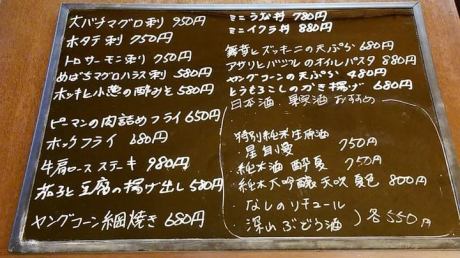 大バチマグロ刺 950円
ホタテ刺 750円
トロサーモン刺 680円
めばちマグロハラス刺 580円
ホッキと小葱の酢みそ 580円
ピーマンの肉詰めフライ 650円
ホッケフライ 680円
牛肩ロースステーキ 980円
茄子と豆腐の揚げ出し 580円
ヤングコーン網焼き 680円
ミニうな丼 780円
ミニイクラ丼 880円
舞茸とズッキーニの天ぷら 680円
アサリとバジルのオイルパスタ 880円
ヤングコーンの天ぷら 480円
とうもろこしのかき揚げ 680円
日本酒・果実酒 おすすめ
特別純米生原酒
星自慢 750円
純米酒 酔夏 750円
純米大吟醸 天吹 夏色 800円
なしのリキュール
深山ぶどう酒 各550円